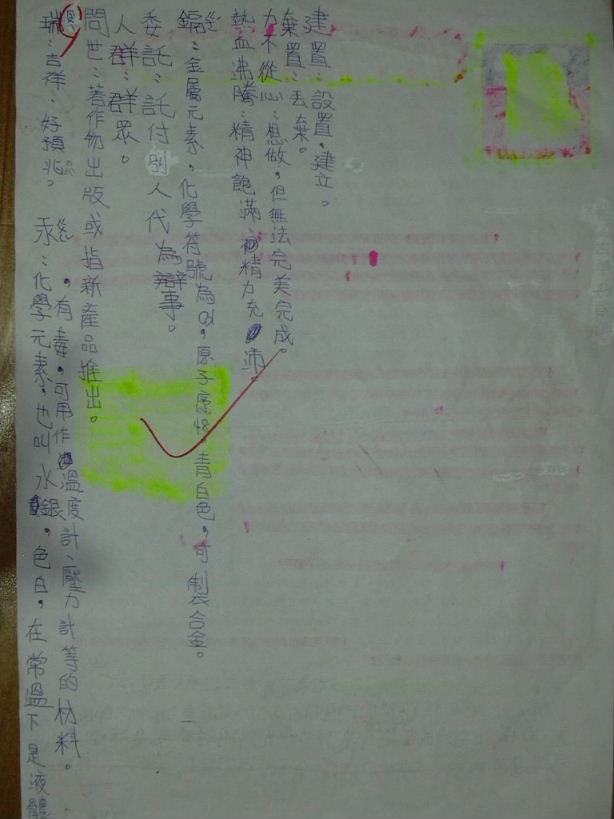 建置：設置，建立。
棄置：丟棄。
力不從心：想做，但無法完美完成。
熱血沸騰：精神飽滿，精力充沛。
鎘：金屬元素，化學符號為Cd，原子序48，青白色，可製合金。
委託：託付別人代為辯事。
人群：群眾。
問世：著作物出版或指新產品推出。
瑞：吉祥；好預兆。
汞：化學元素，也叫水銀，色白，在常溫下是液體
，有毒，可用作溫度計、壓力計等的材料。